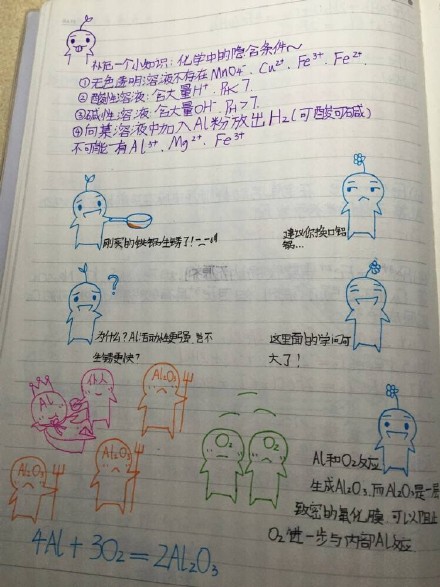 补充一个小知识:化学中的隐含条件~
①无色透明溶液不存在MnO₄⁻ Cu²⁺ Fe³⁺ Fe²⁺
②酸性溶液:含大量H⁺ PH<7.
③碱性溶液:含大量OH⁻ PH>7.
④向某溶液中加入Al粉放出H₂(可酸可碱)
不可能有Al³⁺ Mg²⁺ Fe³⁺
刚买的铁锅生锈了!
建议你换口铝
锅...
?
为什么?Al活动性更强,岂不
生锈更快?
这里面的学问可
大了!
Al
仆人
Al₂O₃
Al₂O₃
Al₂O₃
O₂
O₂
Al和O₂反应
生成Al₂O₃,而Al₂O₃是一层
致密的氧化膜,可以阻止
O₂进一步与内部Al反应
4Al+3O₂=2Al₂O₃